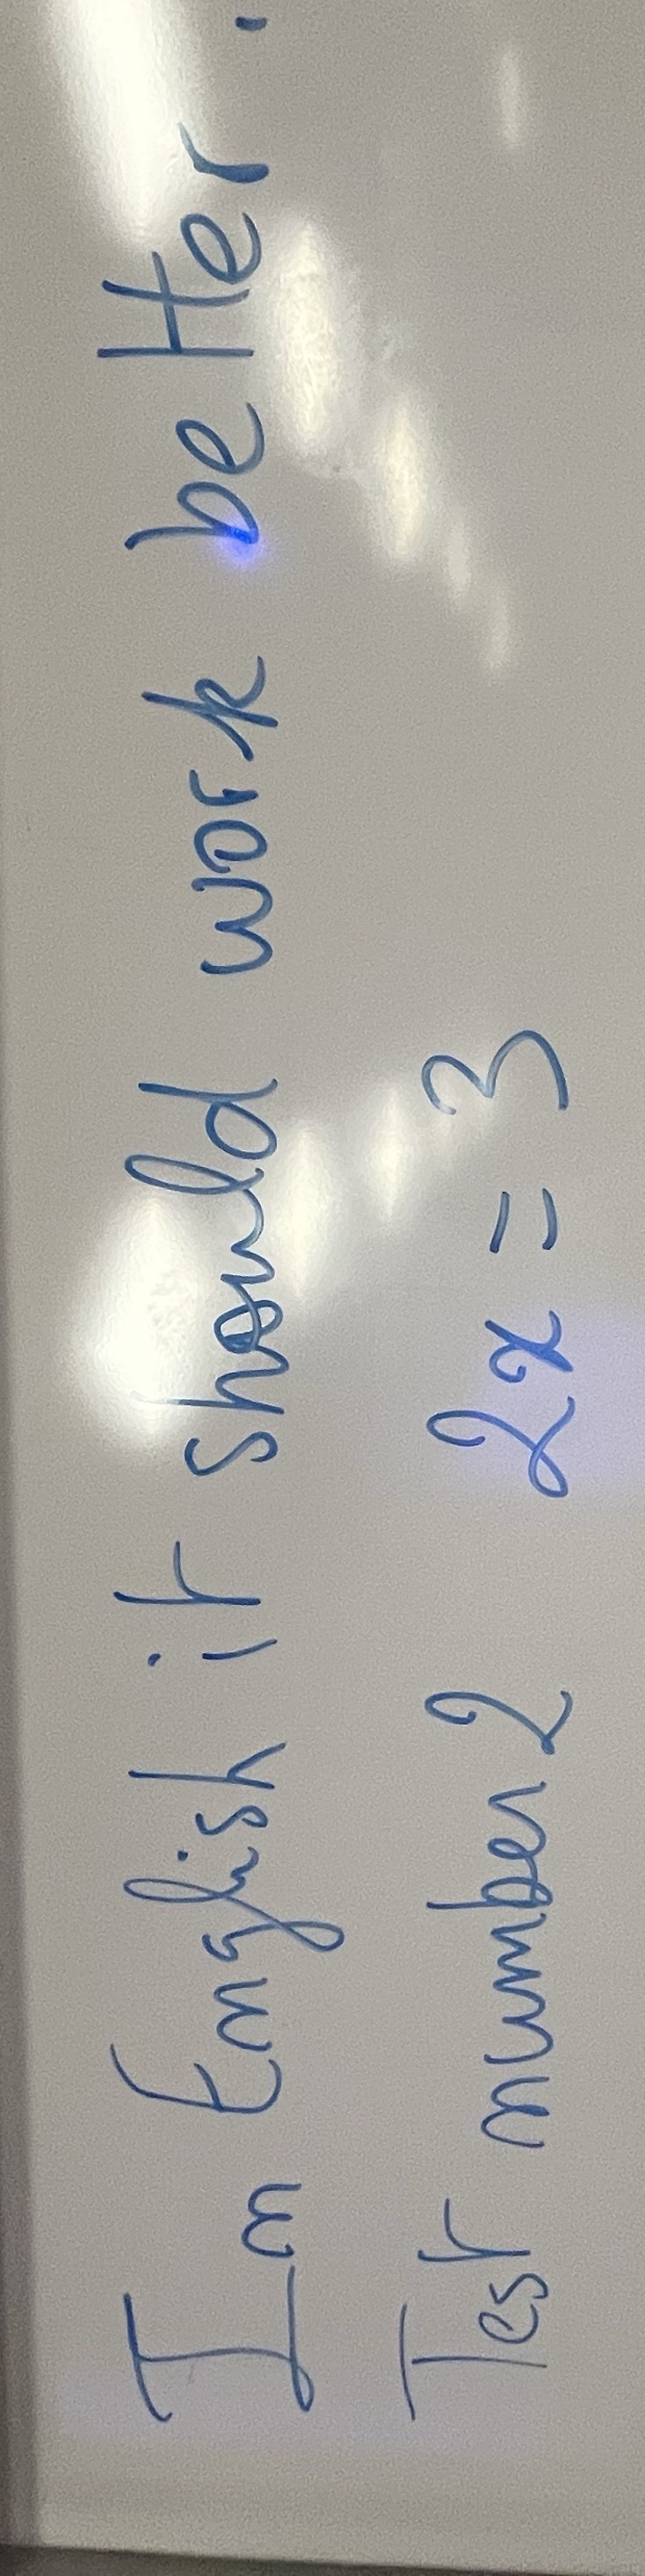 In English it should work better.
Test number 2 2x = 3